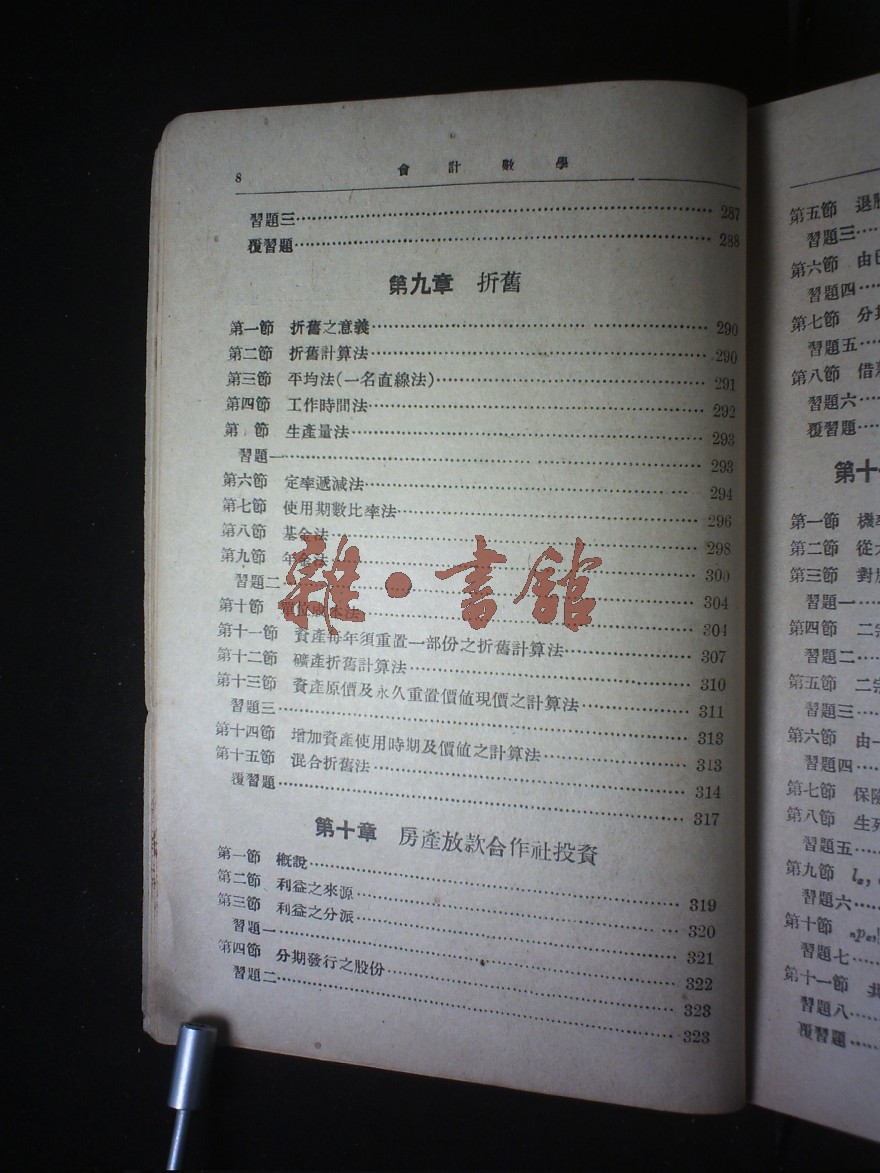 8 會計數學
習題三 287
覆習題 288
第九章 折舊
第一節 折舊之意義 290
第二節 折舊計算法 290
第三節 平均法(一名直線法) 291
第四節 工作時間法 292
第 節 生產量法 293
習題一 293
第六節 定率遞減法 294
第七節 使用期數比率法 296
第八節 基金法 298
第九節 年金法 300
習題二 304
第十節 單位成本法 304
第十一節 資產每年須重置一部份之折舊計算法 307
第十二節 礦產折舊計算法 310
第十三節 資產原價及永久重置價値現價之計算法 311
習題三 313
第十四節 增加資產使用時期及價値之計算法 313
第十五節 混合折舊法 314
覆習題 317
第十章 房產放款合作社投資
第一節 概說 319
第二節 利益之來源 320
第三節 利益之分派 321
習題一 322
第四節 分期發行之股份 323
習題二 323
雜·書館
第五節 退
習題三
第六節 由
習題四
第七節 分
習題五
第八節 借
習題六
覆習題
第十
第一節 機
第二節 從
第三節 對
習題一
第四節 二
習題二
第五節 二
習題三
第六節 由
習題四
第七節 保
第八節 生
習題五
第九節
習題六
第十節
習題七
第十一節
習題八
覆習題